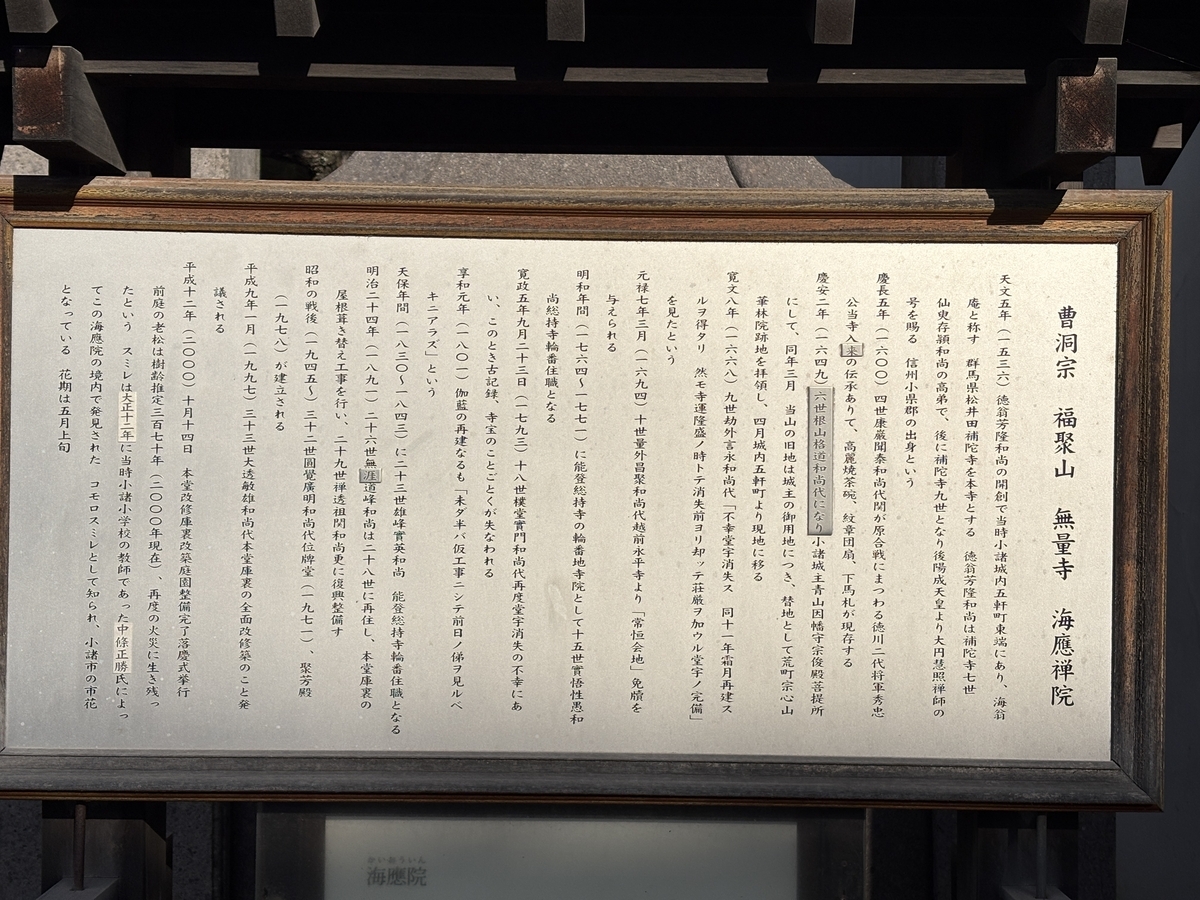 曹洞宗　福聚山　無量寺　海應禅院
天文五年（一五三六）徳翁芳隆和尚の開創で当時小諸城内五軒町東端にあり、海翁
庵と称す　群馬県松井田補陀寺を本寺とする　徳翁芳隆和尚は補陀寺七世
仙叟存頴和尚の高弟で、後に補陀寺九世となり後陽成天皇より大円慧照禅師の
号を賜る　信州小県郡の出身という
慶長五年（一六〇〇）四世康巌聞泰和尚代関が原合戦にまつわる徳川二代将軍秀忠
公当寺入来の伝承ありて、高麗焼茶碗、紋章団扇、下馬札が現存する
慶安二年（一六四九）六世根山格道和尚代になり小諸城主青山因幡守宗俊殿菩提所
にして、同年三月　当山の旧地は城主の御用地につき、替地として荒町宗心山
筆林院跡地を拝領し、四月城内五軒町より現地に移る
寛文八年（一六六八）九世劫外言永和尚代「不幸堂宇消失ス　同十一年霜月再建ス
ルヲ得タリ　然モ寺運隆盛ノ時トテ消失前ヨリ却ッテ荘厳ヲ加ウル堂宇ノ完備」
を見たという
元禄七年三月（一六九四）十世量外昌聚和尚代越前永平寺より「常恒会地」免牘を
与えられる
明和年間（一七六四〜一七七一）に能登総持寺の輪番地寺院として十五世實悟性愚和
尚総持寺輪番住職となる
寛政五年九月二十三日（一七九三）十八世檏堂實門和尚代再度堂宇消失の不幸にあ
い、このとき古記録、寺宝のことごとくが失なわれる
享和元年（一八〇一）伽藍の再建なるも「未ダ半バ仮工事ニシテ前日ノ俤ヲ見ルベ
キニアラズ」という
天保年間（一八三〇〜一八四三）に二十三世雄峰實英和尚　能登総持寺輪番住職となる
明治二十四年（一八九一）二十六世無涯道峰和尚は二十八世に再住し、本堂庫裏の
屋根葺き替え工事を行い、二十九世禅透祖関和尚更に復興整備す
昭和の戦後（一九四五〜）三十二世圓覺廣明和尚代位牌堂（一九七一）、聚芳殿
（一九七八）が建立される
平成九年一月（一九九七）三十三世大透敏雄和尚代本堂庫裏の全面改修築のこと発
議される
平成十二年（二〇〇〇）十月十四日　本堂改修庫裏改築庭園整備完了落慶式挙行
前庭の老松は樹齢推定三百七十年（二〇〇〇年現在）、再度の火災に生き残っ
たという　スミレは大正十二年に当時小諸小学校の教師であった中條正勝氏によっ
てこの海應院の境内で発見された　コモロスミレとして知られ、小諸市の市花
となっている　花期は五月上旬
かいおういん
海應院